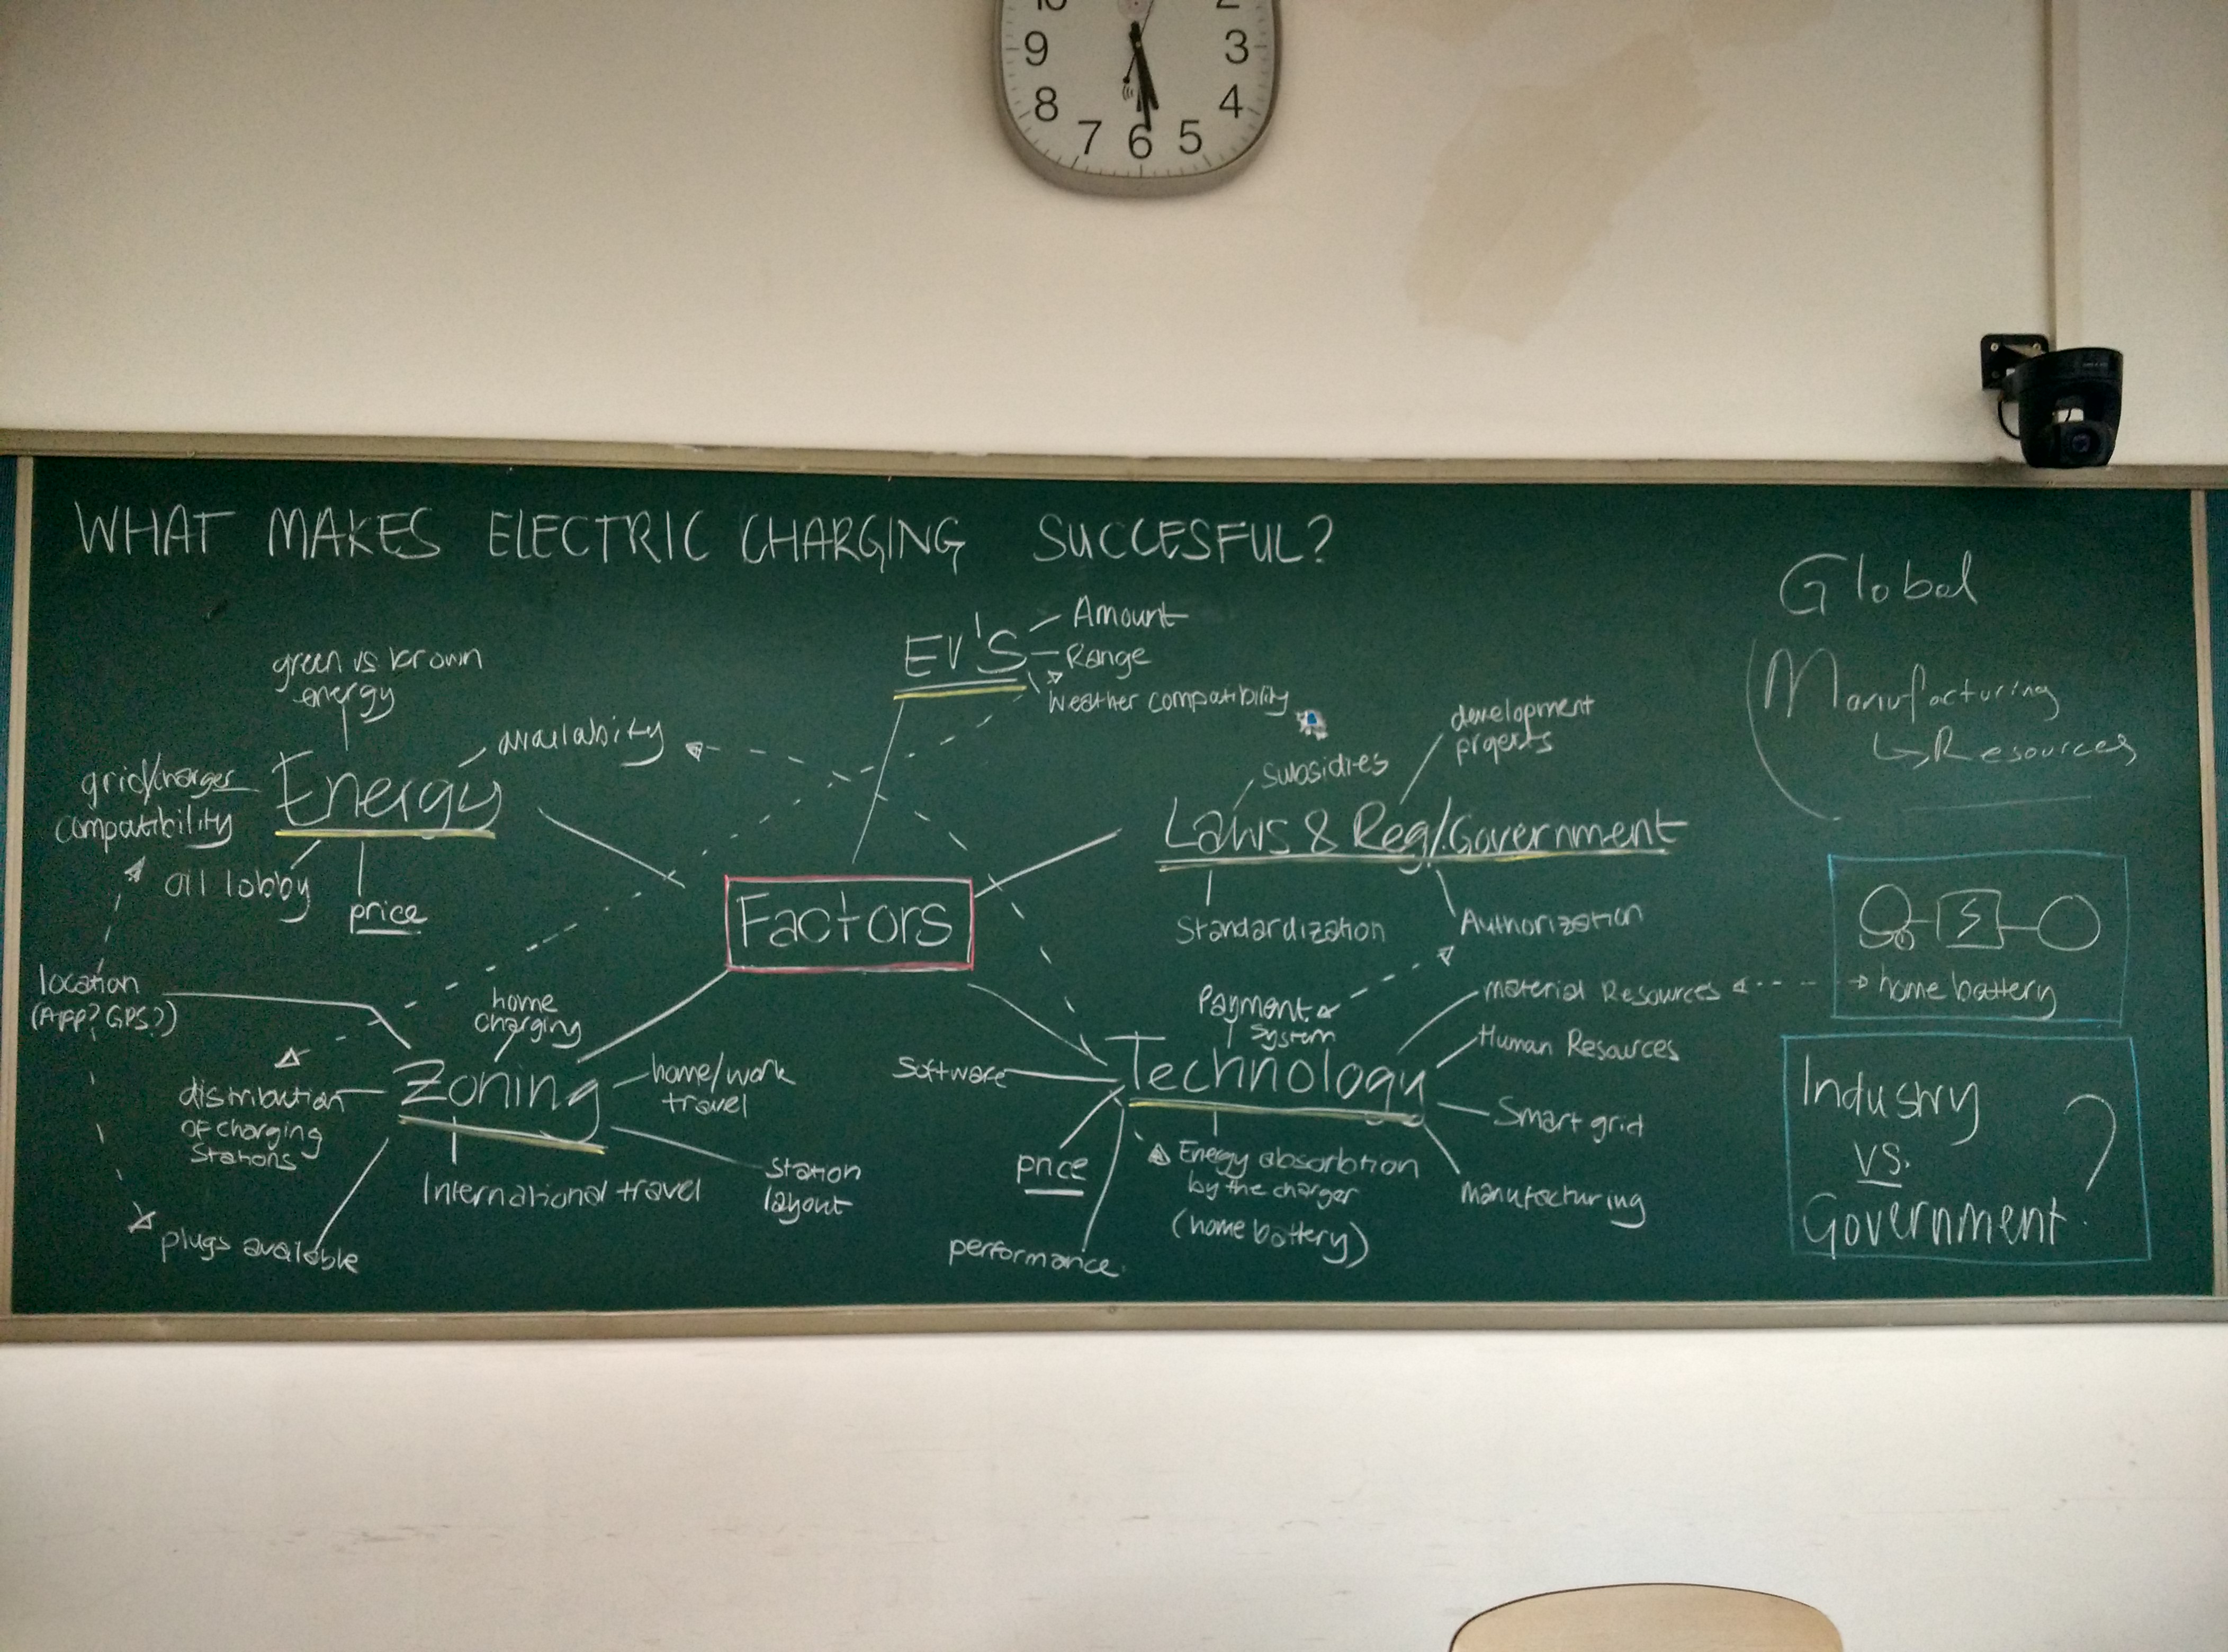 10
2
9
3
8
4
7
6
5
WHAT MAKES ELECTRIC CHARGING SUCCESFUL?
EV'S
Amount
Range
Weather compatibility
green vs brown
energy
Energy
availabity
grid/charger
compatibility
oil lobby
price
Laws & Reg/.Government
Subsidies
development
projects
Standardization
Authorization
Factors
location
(APP? GPS?)
home
charging
Zoning
home/work
travel
distribution
OF charging
Stations
International travel
station
layout
plugs available
Payment
System
Technology
Software
price
performance.
Energy absorbtion
by the charger
(home battery)
material Resources
Human Resources
Smart grid
manufacturing
Global
Manufacturing
Resources
home battery
Industry
VS.
Government
?